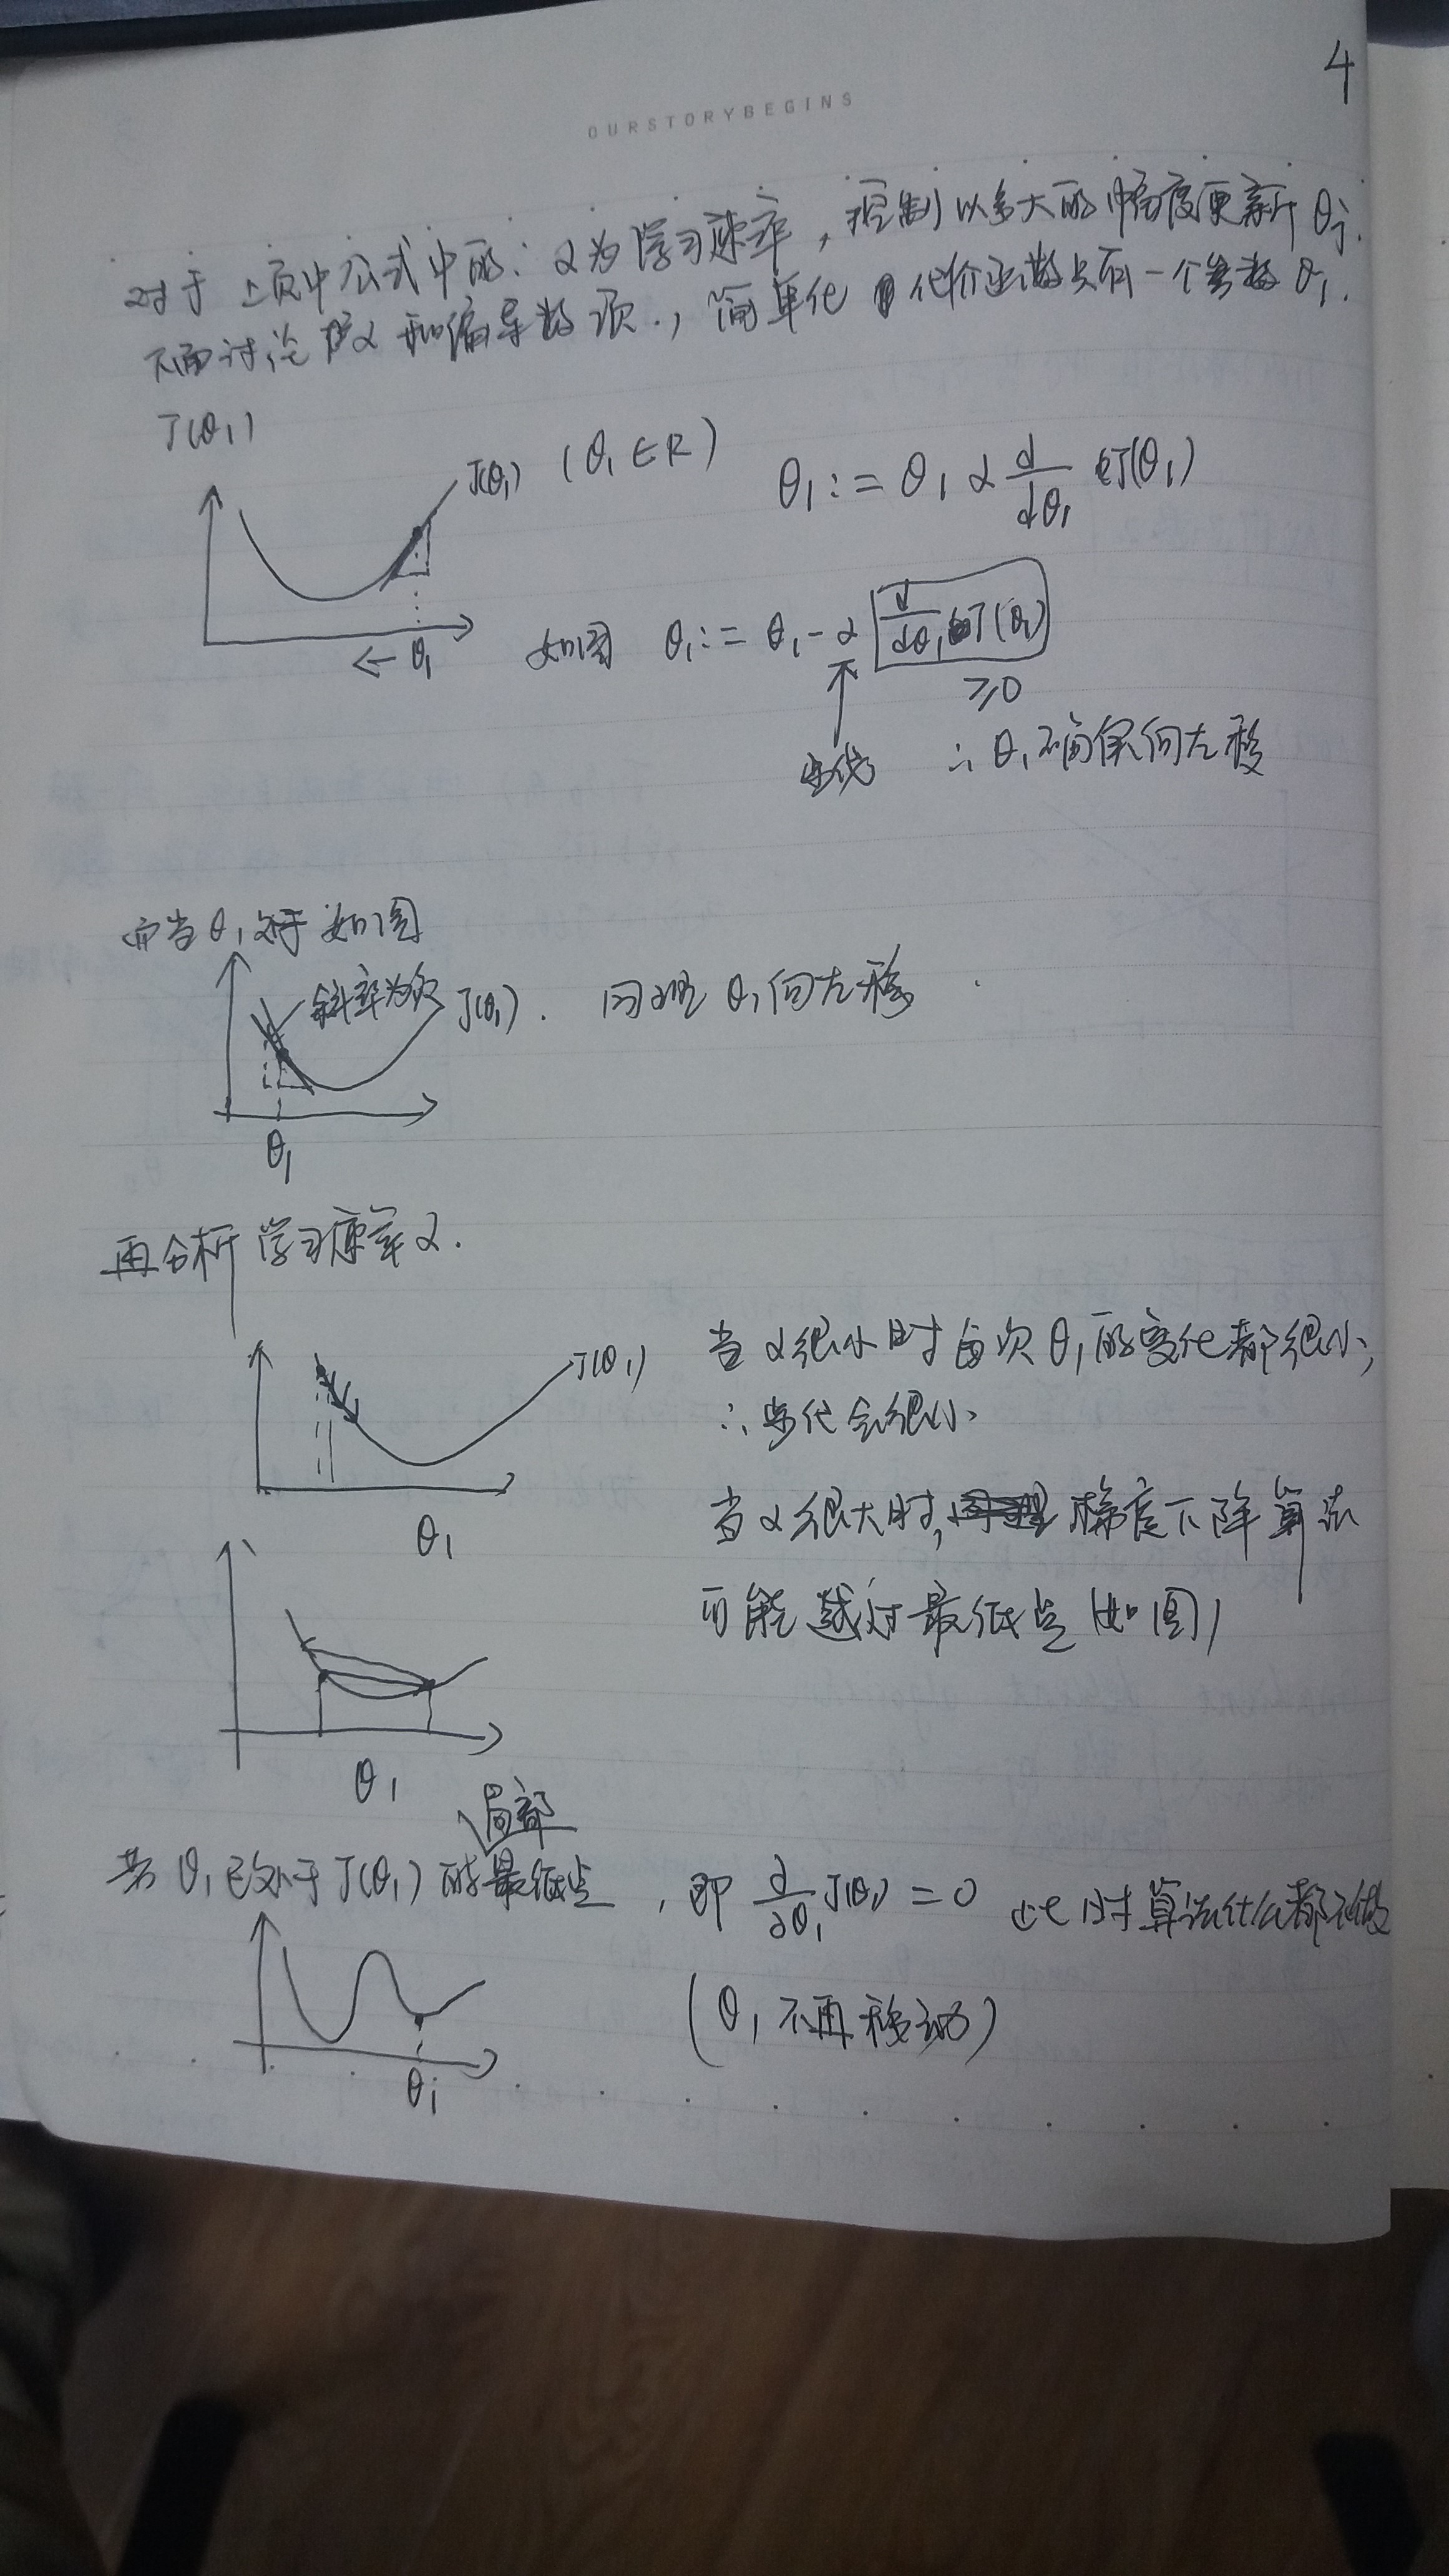 4
OURSTORYBEGINS
对于上页中公式中的：α为学习速率，控制以多大的幅度更新θj.
下面讨论α和偏导数项.，简单化 代价函数只有一个参数θ1.
J(θ1)
J(θ1) (θ1∈R) θ1:=θ1 α d/dθ1 J(θ1)
如图 θ1:=θ1-α d/dθ1 J(θ1)
≥0
θ1
步伐 ∴θ1 向左移
而当θ1处于如图
斜率为负 J(θ1). 同理θ1向左移
θ1
再分析学习速率α.
J(θ1) 当α很小时每次θ1的变化都很小,
∴步伐会很小
θ1
当α很大时,梯度下降算法
可能越过最低点(如图)
θ1
局部
若θ1已处于J(θ1)的最低点，即 ∂/∂θ1 J(θ1)=0 此时算法什么都不做
(θ1不再移动)
θ1